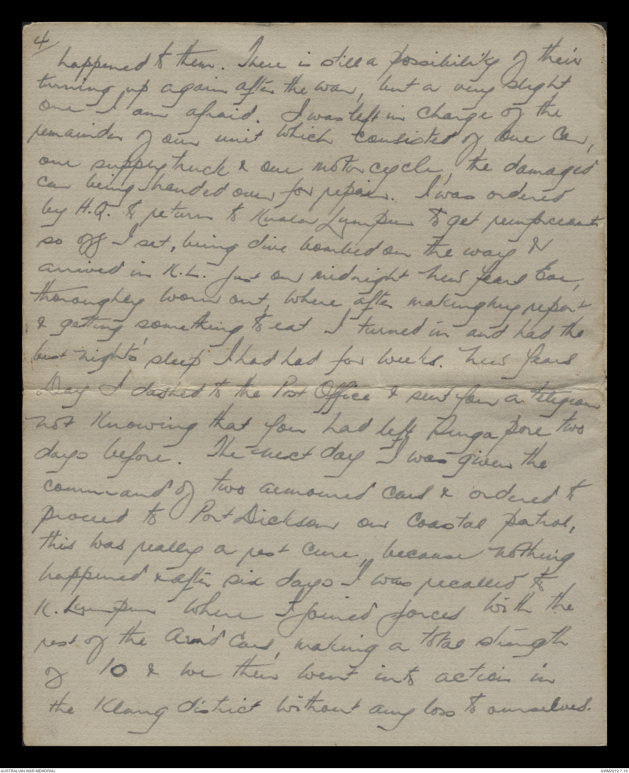 4/
happened to them. There is still a possibility of their
turning up again after the war, but a very slight
one I am afraid. I was left in charge of the
remainder of our unit which consisted of one car,
one supply truck & one motor cycle, the damaged
car being handed over for repair. I was ordered
by H.Q. to return to Kuala Lumpur to get reinforcements
so off I set, being dive bombed on the way &
arrived in K.L. just on midnight New Years Eve,
thoroughly worn out, where after making my report
& getting something to eat I turned in and had the
best nights' sleep I had had for weeks. New Years
Day I dashed to the Post Office & sent you a telegram
not knowing that you had left Singapore two
days before. The next day I was given the
command of two armoured cars & ordered to
proceed to Port Dickson on coastal patrol,
this was really a rest cure, because nothing
happened & after six days I was recalled to
K. Lumpur where I joined forces with the
rest of the Arm'd Cars, making a total strength
of 10 & we then went into action in
the Klang district without any loss to ourselves.
AUSTRALIAN WAR MEMORIAL